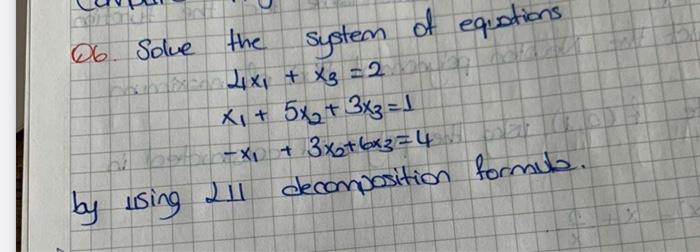 Q6. Solve the system of equations
4x₁ + x₃ = 2
x₁ + 5x₂ + 3x₃ = 1
-x₁ + 3x₂ + 6x₃ = 4
by using LU decomposition formula.